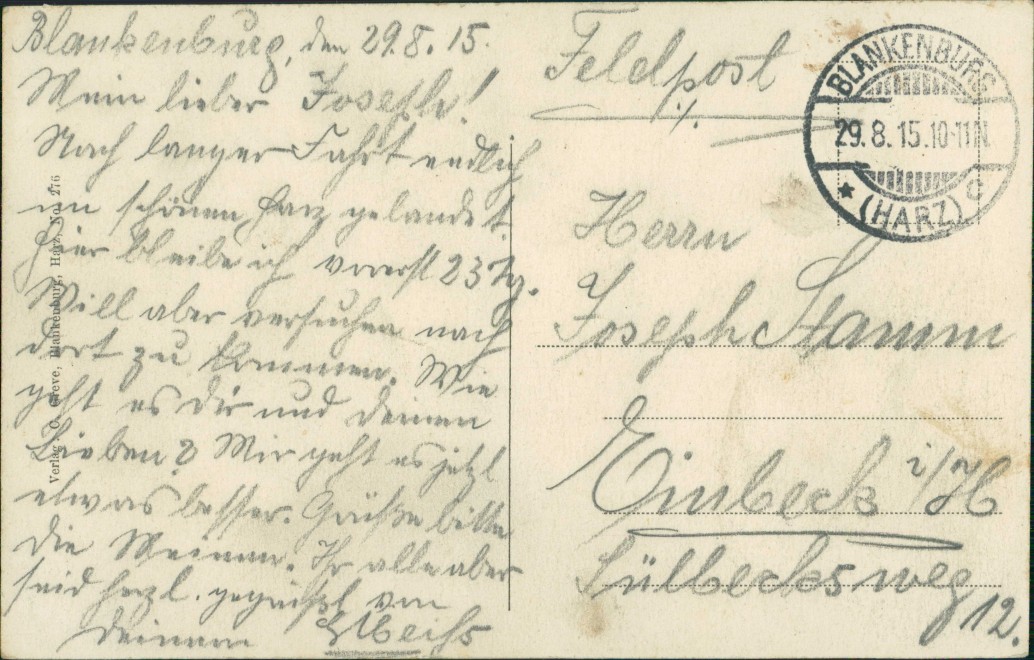 Blankenburg, den 29.8.15.
Mein lieber Joseph!
Nach langer Fahrt endlich
im schönen Harz gelandet.
Hier bleibe ich vorerst 23 Tg.
Will aber versuchen nach
dort zu kommen. Wie
geht es Dir und Deinen
Lieben? Mir geht es jetzt
etwas besser. Grüße bitte
die Meinen. Ihr alle aber
seid herzl. gegrüßt von
Deinem
Verlag: O. Greve, Blankenburg, Harz, No. 276
Feldpost
BLANKENBURG
29.8.15.10-11N.
* (HARZ) C
Herrn
Joseph Stamm
Einbeck i/H
Hüllbecksweg
12.